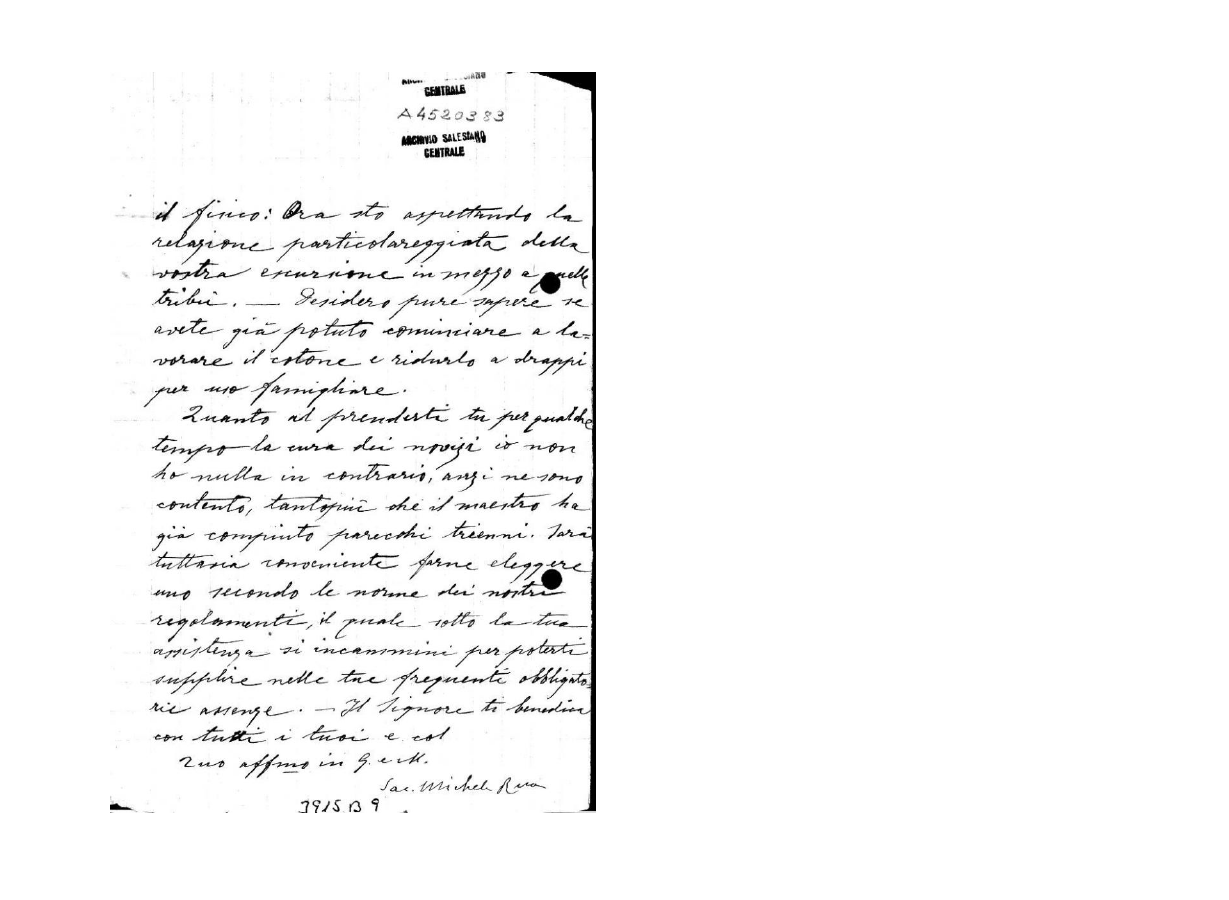 CENTRALE
A4520383
ARCHIVIO SALESIANO
CENTRALE
il fisico: Ora sto aspettando la
relazione particolareggiata della
vostra escursione in mezzo a quelle
tribù. — Desidero pure sapere se
avete già potuto cominciare a la=
vorare il cotone e ridurlo a drappi
per uso famigliare.
Quanto al prenderti tu per qualche
tempo la cura dei novizi io non
ho nulla in contrario, anzi ne sono
contento, tantopiù che il maestro ha
già compiuto parecchi trienni. Sarà
tuttavia conveniente farne eleggere
uno secondo le norme dei nostri
regolamenti, il quale sotto la tua
assistenza si incammini per poterti
supplire nelle tue frequenti obbligato=
rie assenze. — Il Signore ti benedica
con tutti i tuoi e col
Tuo affmo in G. e M.
Sac. Michele Rua
3915 B 9